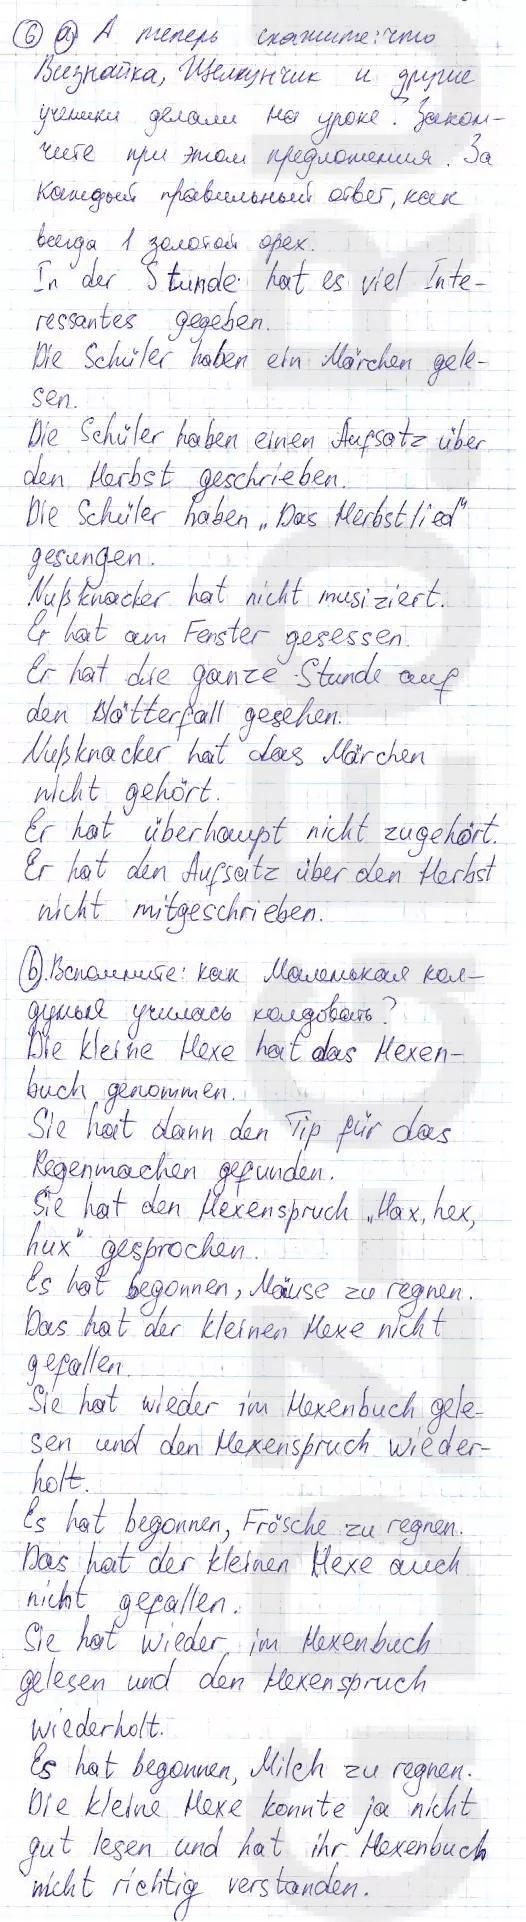 6 a) А теперь скажите: что
Всезнайка, Щелкунчик и другие
ученики делали на уроке? Закон-
чите при этом предложения. За
каждый правильный ответ, как
всегда 1 золотой орех.
In der Stunde hat es viel Inte-
ressantes gegeben.
Die Schüler haben ein Märchen gele-
sen.
Die Schüler haben einen Aufsatz über
den Herbst geschrieben.
Die Schüler haben „Das Herbstlied"
gesungen.
Nußknacker hat nicht musiziert.
Er hat am Fenster gesessen.
Er hat die ganze Stunde auf
den Blätterfall gesehen.
Nußknacker hat das Märchen
nicht gehört.
Er hat überhaupt nicht zugehört.
Er hat den Aufsatz über den Herbst
nicht mitgeschrieben.
b). Вспомните: как Маленькая кол-
дунья училась колдовать?
Die kleine Hexe hat das Hexen-
buch genommen.
Sie hat dann den Tip für das
Regenmachen gefunden.
Sie hat den Hexenspruch „Hax, hex,
hux" gesprochen.
Es hat begonnen, Mäuse zu regnen.
Das hat der kleinen Hexe nicht
gefallen.
Sie hat wieder im Hexenbuch gele-
sen und den Hexenspruch wieder-
holt.
Es hat begonnen, Frösche zu regnen.
Das hat der kleinen Hexe auch
nicht gefallen.
Sie hat wieder im Hexenbuch
gelesen und den Hexenspruch
wiederholt.
Es hat begonnen, Milch zu regnen.
Die kleine Hexe konnte ja nicht
gut lesen und hat ihr Hexenbuch
nicht richtig verstanden.